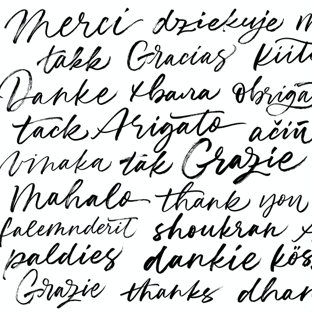 Merci dziekuje
takk Gracias kiit
Danke хвала obriga
tack Arigato ačiū
vinaka tak Grazie
Mahalo thank you
falemnderit shoukran
paldies dankie kös
Grazie thanks dhan